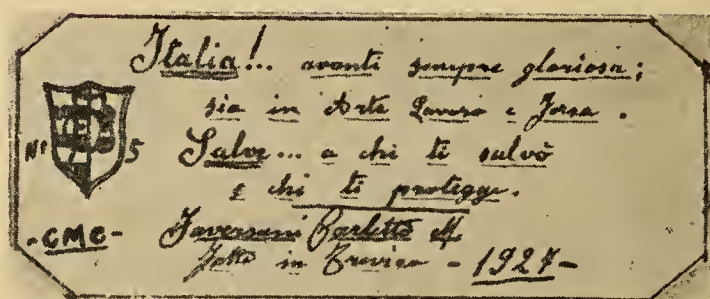 Italia!... avanti sempre gloriosa;
sia in Arte Lavoro e Forza.
Salve... a chi ti salvò
e chi ti protegge.
Nº 5
-CMC-
Carletto M.
Fatto in Treviso - 1927-